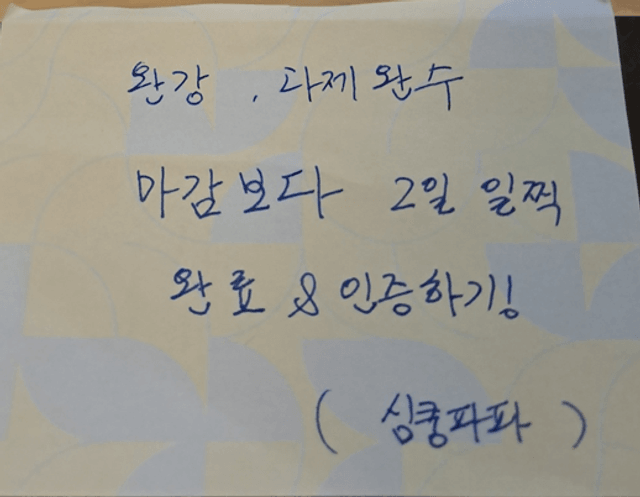 완강, 다제완수
마감보다 2일 일찍
완료 & 인증하기!
(심쿵파파)